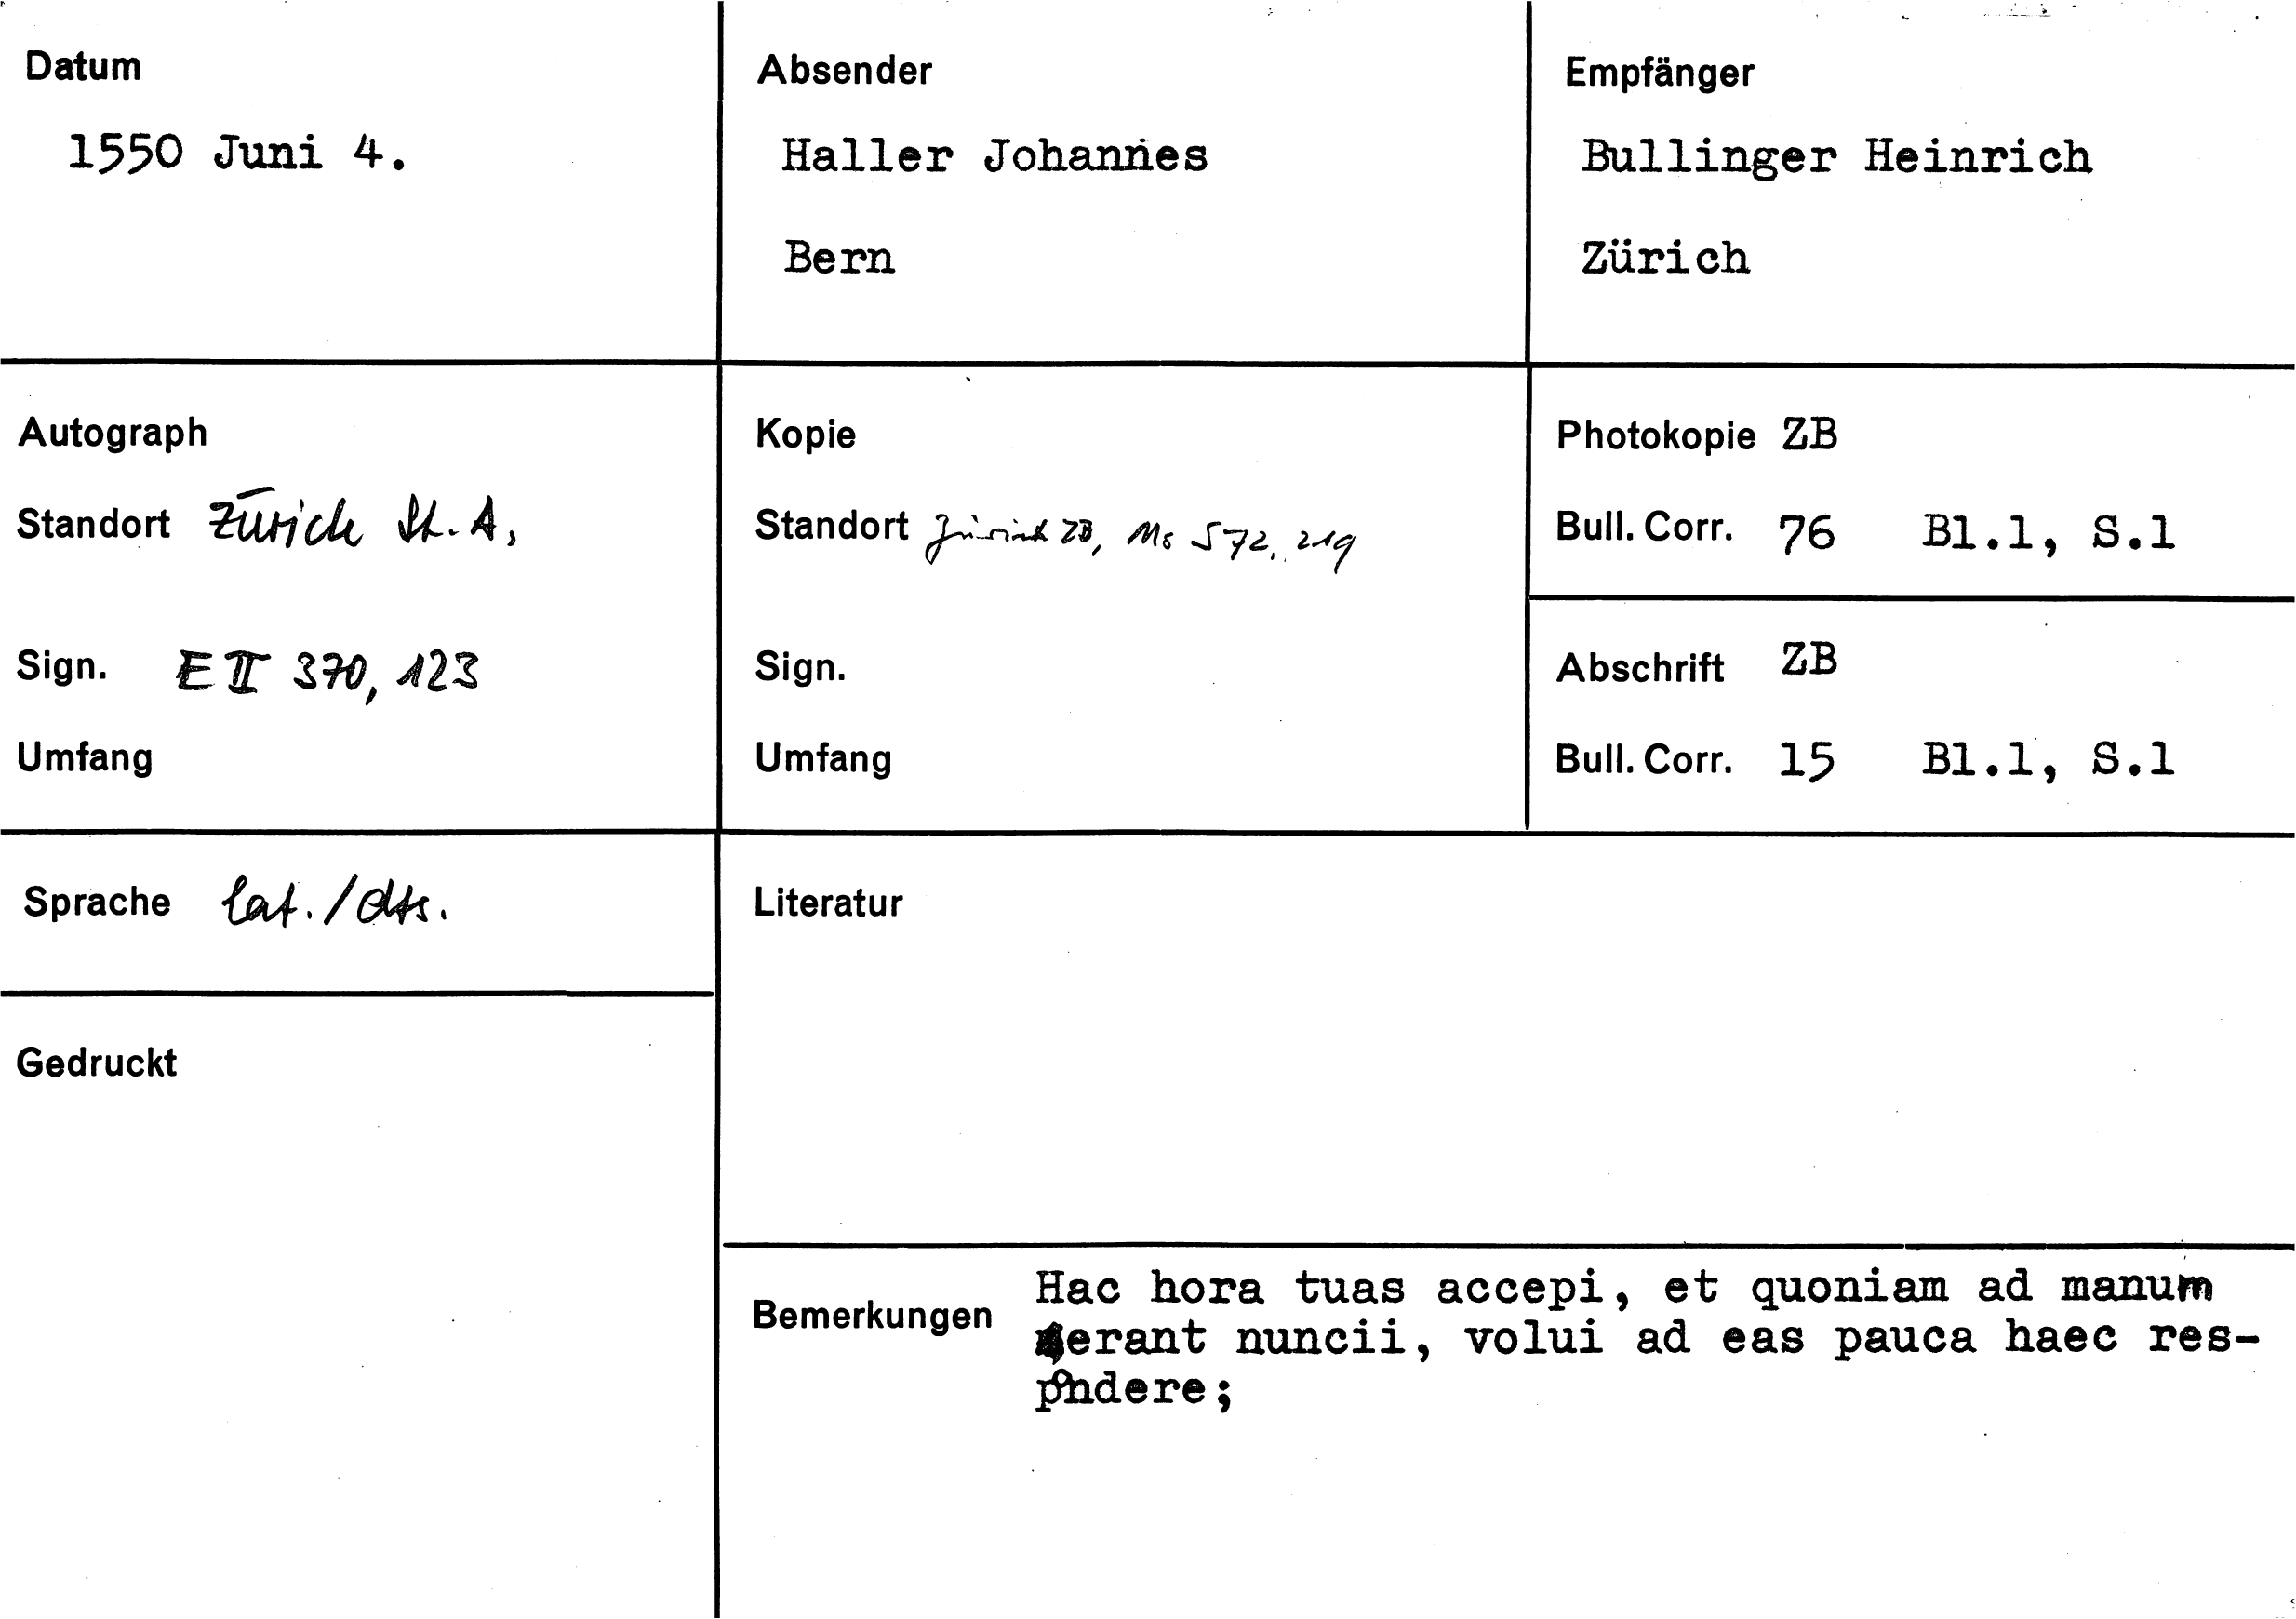 Datum
1550 Juni 4.
Absender
Haller Johannes
Bern
Empfänger
Bullinger Heinrich
Zürich
Autograph
Standort Zürich St. A,
Sign. E II 370, 123
Umfang
Kopie
Standort Zürich ZB, Ms S 72, 219
Sign.
Umfang
Photokopie ZB
Bull. Corr. 76 Bl.1, S.1
Abschrift ZB
Bull. Corr. 15 Bl.1, S.1
Sprache lat./dts.
Gedruckt
Literatur
Bemerkungen
Hac hora tuas accepi, et quoniam ad manum
erant nuncii, volui ad eas pauca haec res-
pondere;